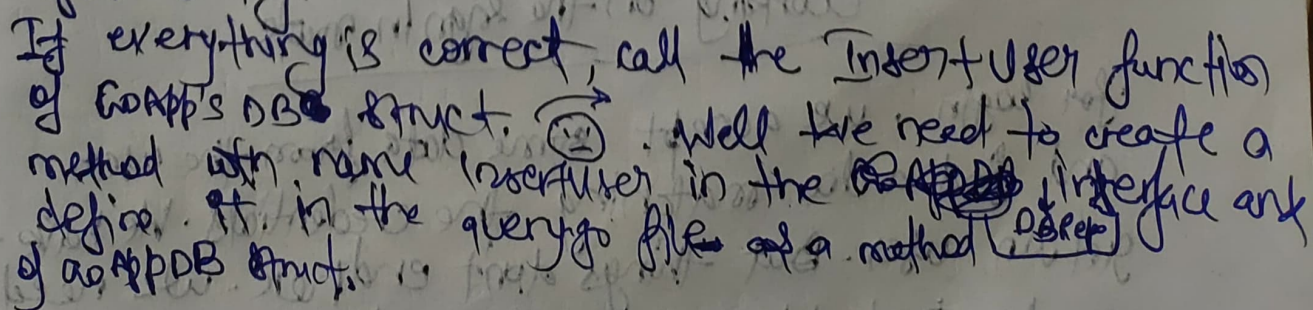 If everything is correct, call the InsertUser function
of GoApp's DB struct. . Well we need to create a
method with name insertuser in the interface and
define. it. in the query.go file as a method DBRepo
of GoAppDB struct.